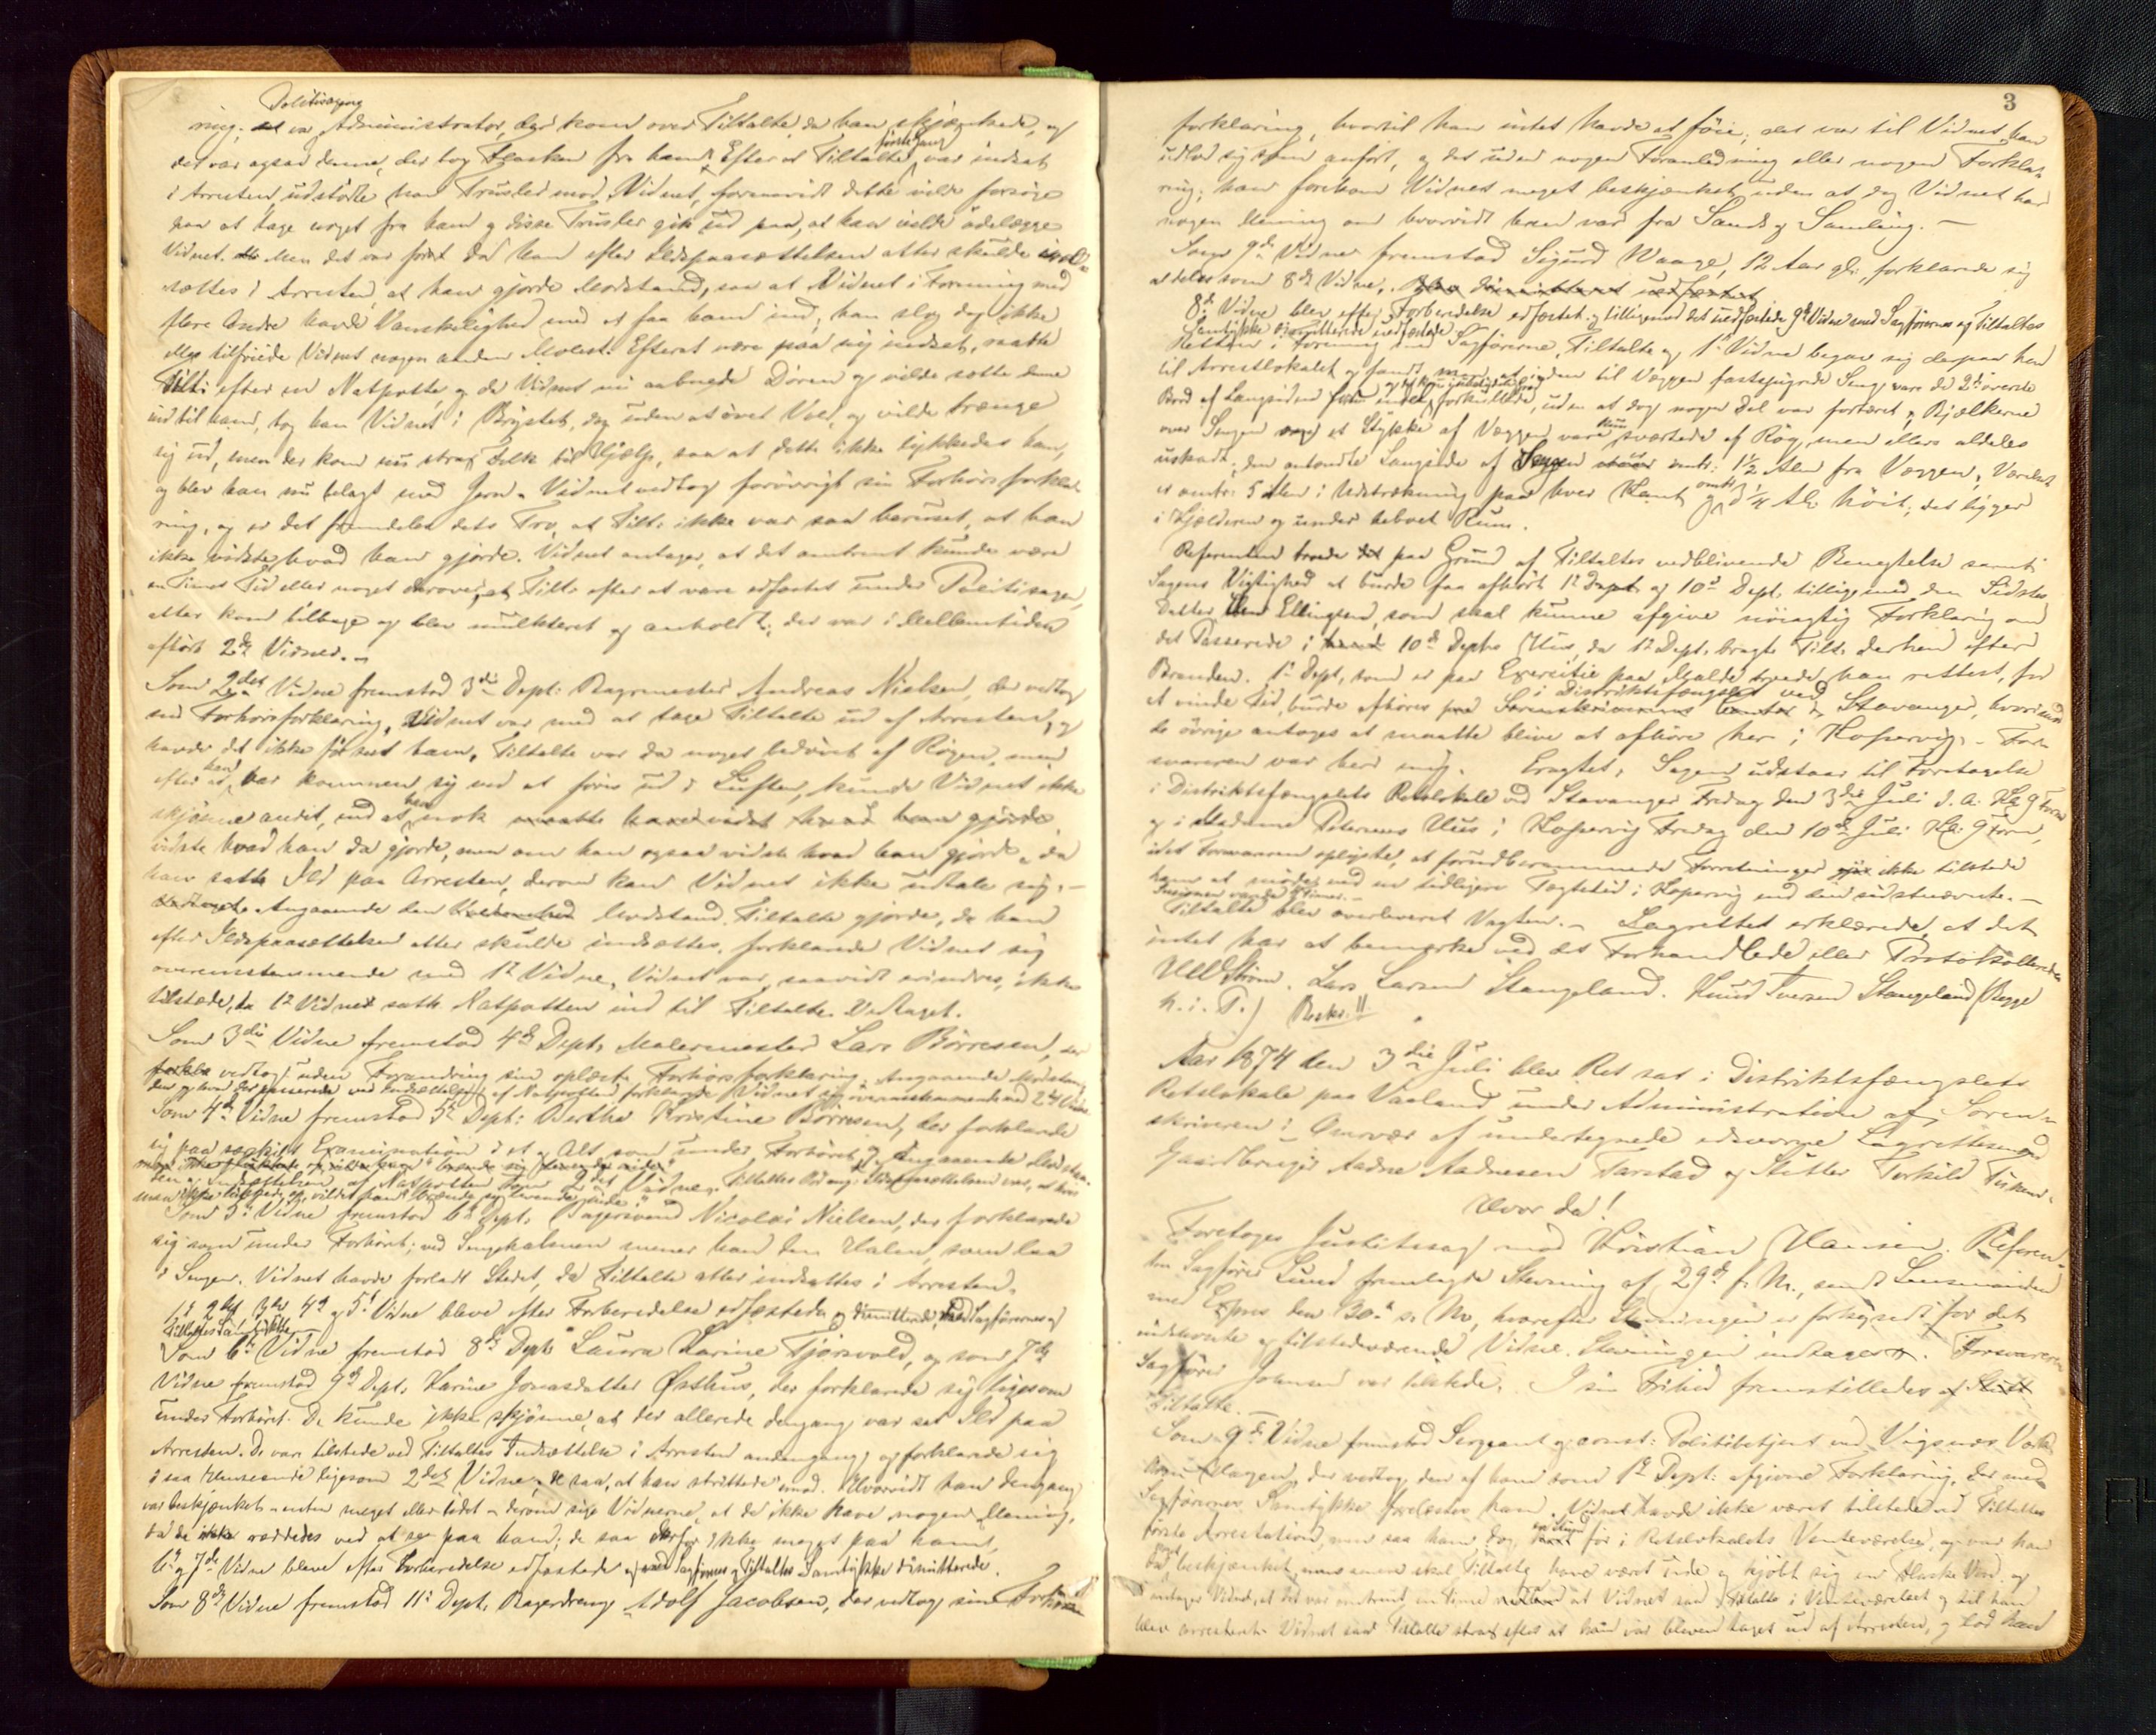 Politisagens
ring; det var Administrator, der kom over Tiltalte, da han skjænkede, og
det var ogsaa denne, der tog Flasken fra ham. Efter at Tiltalte første Gang var indsat
i Arresten, udstødte han Trusler mod Vidnet, forsaavidt dette vilde forsøge
paa at tage noget fra ham og disse Trusler gik ud paa, at han vilde ødelægge
Vidnet. Men det var først da han efter Ildspaasættelsen atter skulde ind-
sættes i Arresten, at han gjorde Modstand, saa at Vidnet i Forening med
flere Andre havde Vanskelighed med at faa ham ind; han slog dog ikke
eller tilføiede Vidnet nogen anden Molest. Efterat være paa ny indsat, raabte
Tilt: efter en Natpotte, og da Vidnet nu aabnede Døren og vilde sætte denne
ind til ham, tog han Vidnet i Brystet, dog uden at øve Vold, og vilde trænge
sig ud, men der kom nu strax Folk til Hjælp, saa at dette ikke lykkedes ham,
og blev han nu belagt med Jern. Vidnet vedtog forøvrigt sin Forhørsforkla-
ring, og er det fremdeles dets Tro, at Tilt: ikke var saa beruset, at han
ikke vidste, hvad han gjorde. Vidnet antager, at det omtrent kunde være
en Times Tid eller noget derover, at Tilt. efter at være edfæstet under Politisagen,
atter kom tilbage og blev mulkteret og anholdt; der var i Mellemtiden
afhørt 2de Vidner. –
Som 2det Vidne fremstod 3die Dept: Bagermester Andreas Nielsen, der vedtog
sin Forhørsforklaring. Vidnet var med at tage Tiltalte ud af Arresten, og
havde det ikke før seet ham. Tiltalte var da noget bedøvet af Røgen, men
efter at han var kommen sig ved at føres ud i Luften, kunde Vidnet ikke
skjønne andet, end at han nok maatte have vidst hvad han gjorde
vidste hvad han da gjorde, men om han ogsaa vidste hvad han gjorde, da
han satte Ild paa Arresten, derom kan Vidnet ikke udtale sig. –
Angaaende den Modstand Tiltalte gjorde, da han
efter Ildspaasættelsen atter skulde indsættes, forklarede Vidnet sig
overensstemmende med 1ste Vidne. Vidnet var, saavidt erindres, ikke
tilstede, da 1ste Vidne satte Natpotten ind til Tiltalte. Vedtaget.
Som 3die Vidne fremstod 4de Dept. Malermester Lars Børresen, der
vedtog uden Forandring sin oplæste Forhørsforklaring. Angaaende Modstan-
den og hvad der passerede ved Indsættelsen af Natpotten forklarede Vidnet sig overensstemmende med 2det Vidne.
Som 4de Vidne fremstod 5te Dept: Berthe Kristine Børresen, der forklarede
sig paa særskilt Examination i et og Alt som under Forhøret; angaaende Modstan-
den og Indsættelsen af Natpotten som 2det Vidne. Tiltaltes Ord ang. Ildspaasættelsen var, at hvis
man ikke lukkede op, vilde han "brænde sig levende inde"
Som 5te Vidne fremstod 6te Dept. Bagersvend Nicolai Nielsen, der forklarede
sig som under Forhøret; ved Sengehalmen mener han den Halm, som laa
i Sengen. Vidnet havde forladt Stedet, da Tiltalte atter indsattes i Arresten.
1ste, 2det, 3die, 4de og 5te Vidne bleve efter Forberedelse edfæstede og dimitterede, med Sagførernes og
Tiltaltes Samtykke. –
Som 6te Vidne fremstod 8de Dept. Laura Karine Tjørsvold, og som 7de
Vidne fremstod 9de Dept. Karine Jonasdatter Østhus, der forklarede sig ligesom
under Forhøret. De kunde ikke skjønne, at der allerede dengang var sat Ild paa
Arresten. De vare tilstede ved Tiltaltes Indsættelse i Arresten andengang, og forklarede sig
i saa Henseende ligesom 2det Vidne; de saa, at han strittede imod. Hvorvidt han dengang
var beskjænket – enten meget eller lidet – derom sige Vidnerne, at de ikke have nogen Mening,
da de ræddedes ved at se paa ham; de saa derfor ikke meget paa ham.
6te og 7de Vidne bleve efter Forberedelse edfæstede og med Sagførernes og Tiltaltes Samtykke dimitterede.
Som 8de Vidne fremstod 11te Dept. Bagerdreng Adolf Jacobsen, der vedtog sin Forhørs-
3
forklaring, hvortil han intet havde at føie; det var til Vidnet, han
udlod sig som anført, og det uden nogen Foranledning eller nogen Forkla-
ring; han forekom Vidnet meget beskjænket, uden at dog Vidnet har
nogen Mening om hvorvidt han var fra Sands og Samling. –
Som 9de Vidne fremstod Sigurd Waage, 12 Aar gl., forklarede sig
aldeles som 8de Vidne.
8de Vidne blev efter Forberedelse edfæstet og tilligemed det uedfæstede 9de Vidne med Sagførernes og Tiltaltes
Samtykke dimitteret.
Retten i Forening med Sagførerne, Tiltalte og 1ste Vidne begav sig derpaa hen
til Arrestlokalet og fandt, at i den til Væggen fastspigrede Seng, vare de 2de øverste
Bord af Langsiden forkullede, uden at dog nogen Del var fortæret, Bjælkerne
over Sengen og et Stykke af Væggen vare kun sværtede af Røg, men ellers aldeles
uskadt; den antændte Langside af Sengen er omtr: 1½ Alen fra Væggen. Værelset
er omtr: 5 Alen i Udstrækning paa hver Kant og omtr. 3¼ Al: høit; det ligger
i Kjælderen og under beboet Rum.
Referenten troede paa Grund af Tiltaltes vedblivende Benegtelse samt
Sagens Vigtighed at burde faa afhørt 1ste Dept og 10de Dept, tilligemed den Sidstes
Datter Ellingsen, som skal kunne afgive nøiagtig Forklaring om
det Passerede i 10de Depts Hus, da 1ste Dept. bragte Tilt. derhen efter
Branden. 1ste Dept, som er paa Exersitie paa Malde troede han rettest, for
at vinde Tid, burde afhøres i Distriktsfængslet ved Stavanger, hvorimod
de øvrige antages at maatte blive at afhøre her i Kopervig. – For-
svareren var heri enig. Eragtet: Sagen udstaar til Foretagelse
i Distriktsfængslets Retslokale ved Stavanger Fredag den 3die Juli d. A. Kl. 9 Form
og i Madame Petersens Hus i Kopervig Fredag den 10de Juli Kl: 9 Form,
idet Forsvareren oplyste, at forudberammede Forretninger ikke tilstede
ham at møde ved en tidligere Tægtetid i Kopervig end den sidstnævnte. –
Tiltalte blev overleveret Vagten. – Lagrettet erklærede, at det
intet har at bemærke ved det Forhandlede eller Protokollerede
Lars Larsen Stangeland. Knud Iversen Stangeland (Begge
h. i. P.) Beskr.
Aar 1874 den 3die Juli blev Ret sat i Distriktsfængslets
Retslokale paa Vaaland under Administration af Soren-
skriveren i Overvær af undertegnede edsvorne Lagrettesmænd
Gaardbruger Aadne Aadnesen Tarstad og Slutter Torkild
Hvor da!
Foretoges Justitssag mod Kristian Hansen. Referen-
ten Sagfører Lund fremlagde Stevning af 29de f. M., sendt Lensmanden
med Expres den 30te s. M., hvorefter Stevningen er forkyndt for det
indstevnte og tilstedeværende Vidne. Stevningen indtages. Forsvareren
Sagfører Johnsen var tilstede. I sin Frihed fremstilledes
Tiltalte. –
Som 9de Vidne fremstod Sergeant og const: Politibetjent ved Vigsnæs Værk
Hagen, der vedtog den af ham som 1ste Dept: afgivne Forklaring, der med
Sagførernes Samtykke forelæstes ham. Vidnet havde ikke været tilstede ved Tiltaltes
første Arrestation, men saa ham dog før i Retslokalets Venteværelse, og var han
da beskjænket, men senere skal Tiltalte have været inde og kjøbt sig en Flaske Vin, og
antager Vidnet, at det var omtrent en Time at Vidnet saa Tiltalte i Venteværelset og til han
blev arresteret. Vidnet saa Tiltalte strax efter at han var bleven taget ud af Arresten, og lod han